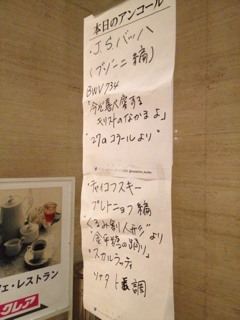 本日のアンコール
・J.S.バッハ
(ブゾーニ編)
BWV734
"今ぞ喜べ愛する
キリストのなかまよ"
コラールより"
・チャイコフスキー
プレトニョフ編
"くるみ割り人形"より
"金平糖の踊り"
"スカルラッティ
ソナタ ト長調
フェ・レストラン
クレア